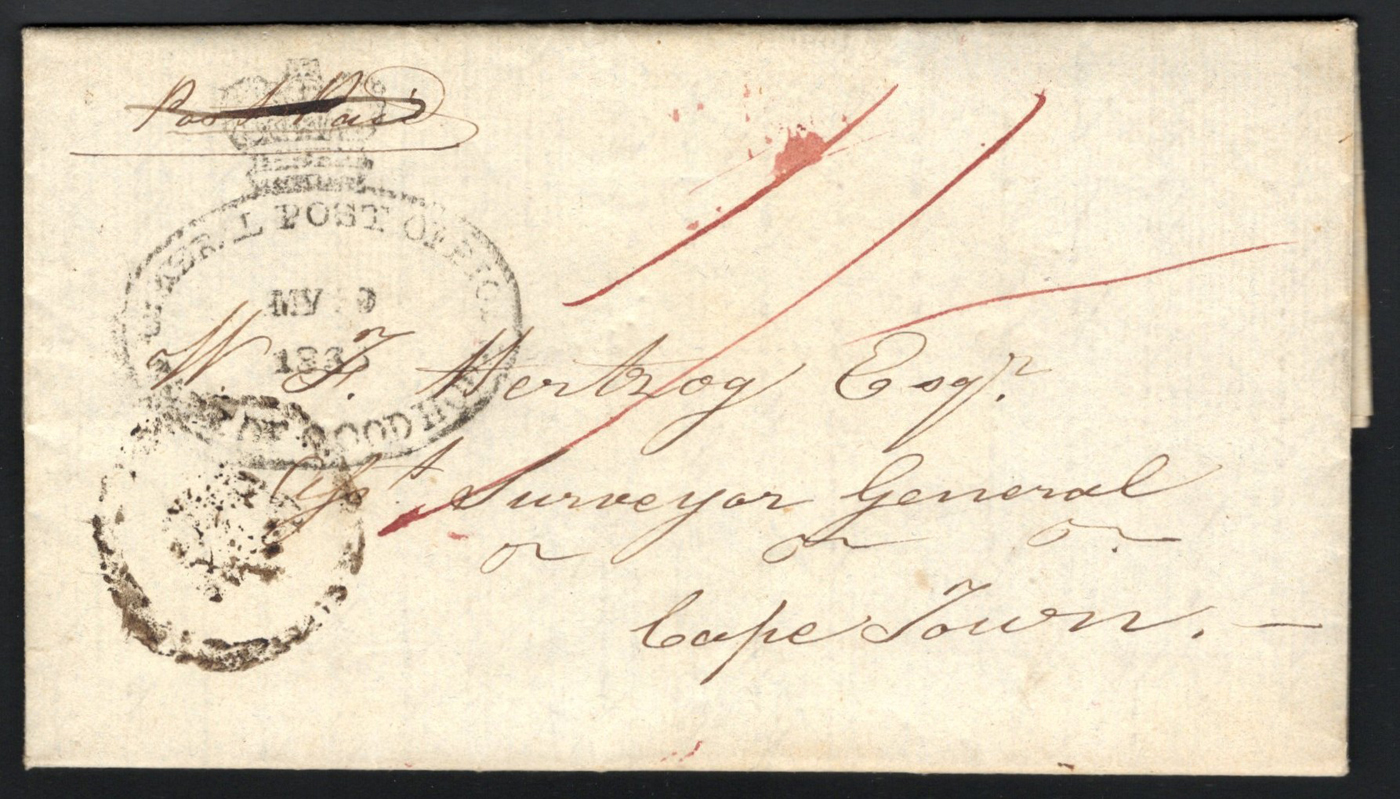 Post Paid
GENERAL POST OFFICE
MY 9
183
GOOD HOPE
W F.n Hertzog Esqr.
Asst Surveyor General
Cape Town. —